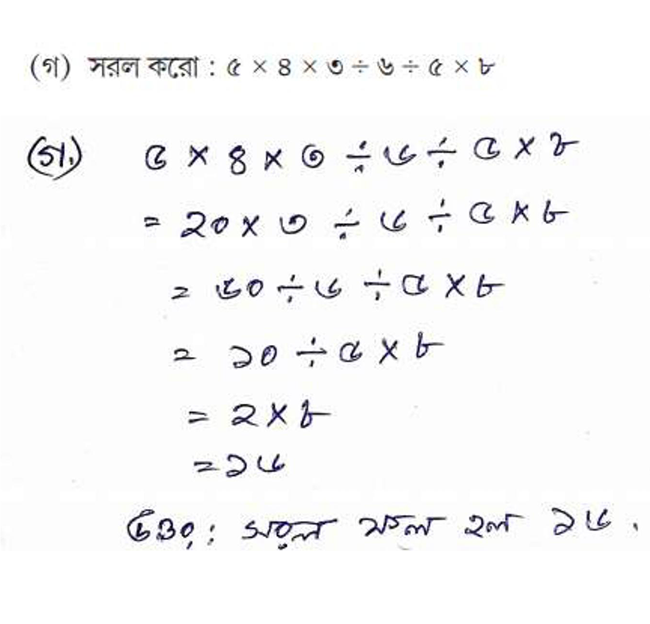 (গ) সরল করো : ৫ × ৪ × ৩ ÷ ৬ ÷ ৫ × ৮
(গ) ৫ × ৪ × ৩ ÷ ৬ ÷ ৫ × ৮
= ২০ × ৩ ÷ ৬ ÷ ৫ × ৮
= ৬০ ÷ ৬ ÷ ৫ × ৮
= ১০ ÷ ৫ × ৮
= ২ × ৮
= ১৬
উঃ: সরল ফল হল ১৬.